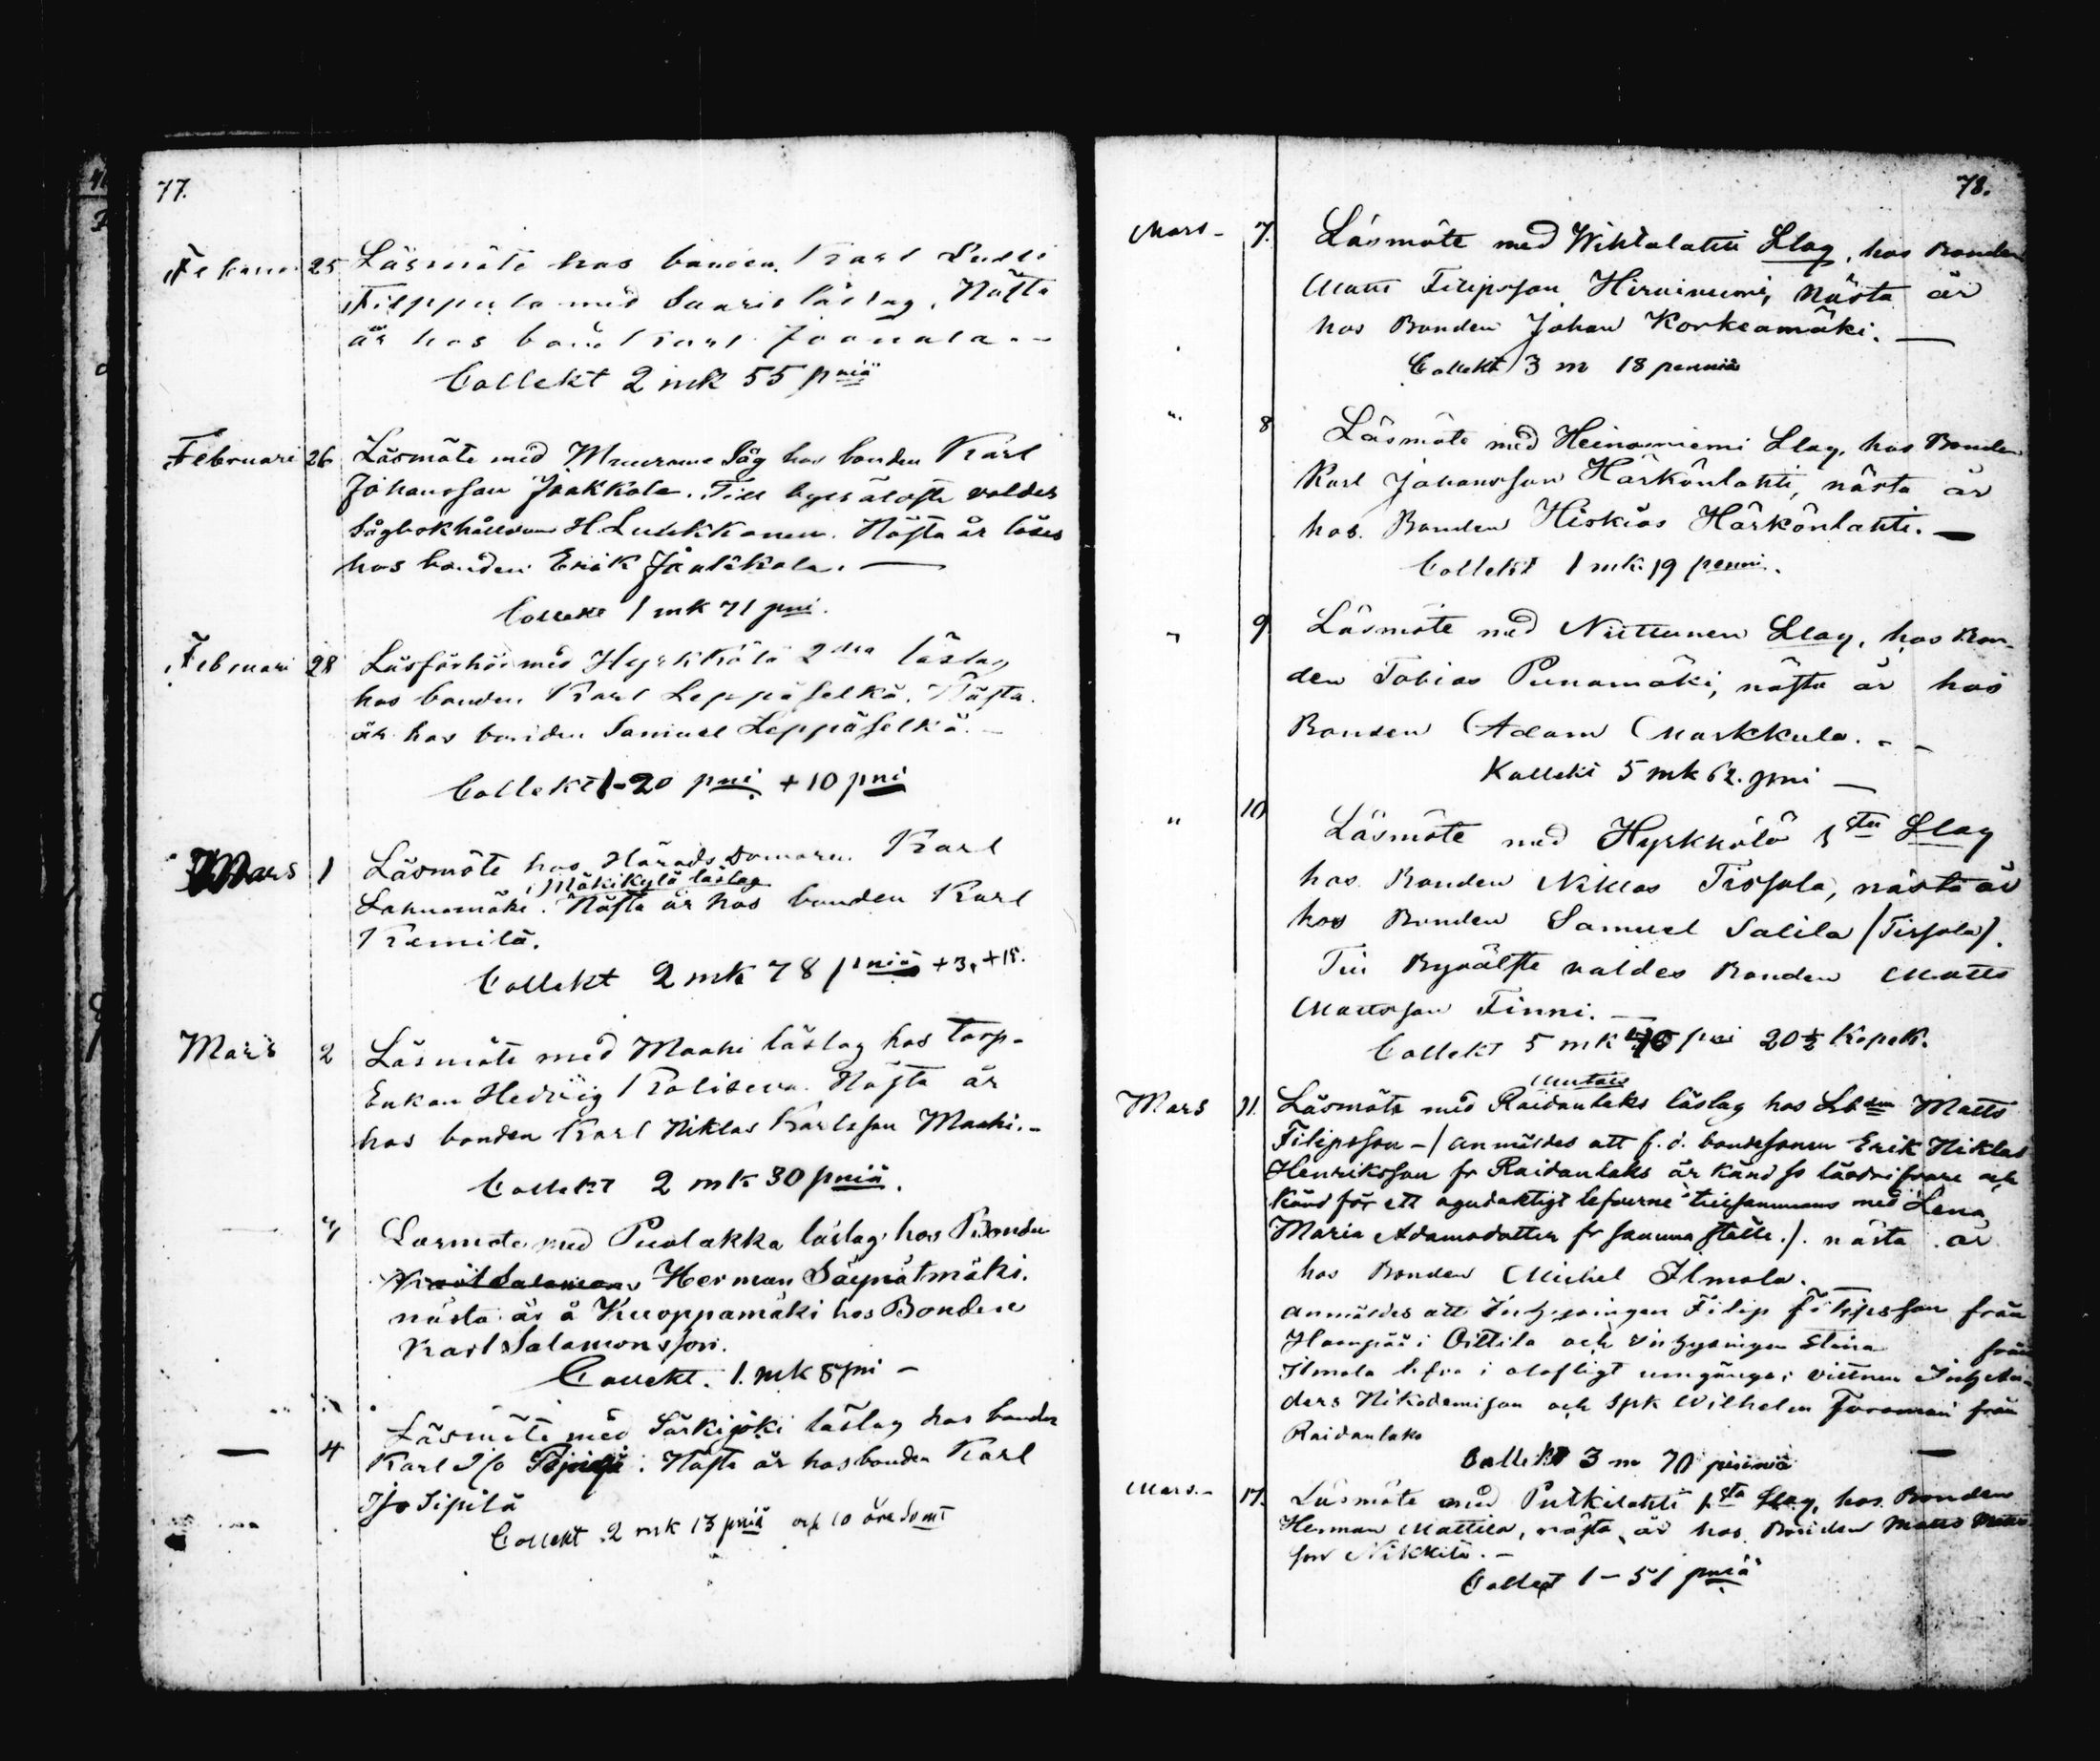 77.
Februari 25 Läsmöte hos bonden Karl
Filppula med Saaris läslag. Nästa
är hos bond Karl Jaanala. -
Collekt 2 mk 55 pniä
Februari 26 Läsmöte med Muurame Såg hos bonden Karl
Johansson Jaakkola. Till byeäldste valdes
Sågbokhållaren H. Nästa år läses
hos bonden Erik Jaakkola. —
Collekt 1 mk 71 pni.
Februari 28 Läsförhör med Hyrkkölä 2dra läslag
hos bonden Karl Leppäselkä. Nästa
är hos bonden Samuel Leppäselkä. -
Collekt 1-20 pni + 10 pni
Mars 1 Läsmöte hos Härads domaren Karl
i Mäkikylä läslag
Lahnamäki. Nästa är hos bonden Karl
Kemilä.
Collekt 2 mk 78 pniä + 3, + 15.
Mars 2 Läsmöte med Maahi läslag hos torp-
Enkan Hedvig Nästa är
hos bonden Karl Niklas Karlsson Maahi. -
Collekt 2 mk 30 pniä.
— Läsmöte med Puolakka läslag hos Bonden
Herman Säynätmäki.
nästa är å Kuoppamäki hos Bonden
Karl Salamonsson.
Collekt. 1. mk 8 pni -
Läsmöte med Särkijoki läslag hos bonden
— 4 Karl J/o Nästa är hos bonden Karl
J/o Sipilä
Collekt 2 mk 13 pniä och 10 öre
78.
Mars - 7. Läsmöte med Wihtalahti Llag, hos Bonden
Matts Filipsson Hirviniemi, Nästa är
hos Bonden Johan Korkeamäki. —
Collekt 3 m 18 penniä
" 8 Läsmöte med Heinoniemi Llag, hos Bonden
Karl Johansson Härkönlahti, nästa är
hos Bonden Hiskias Härkönlahti. —
Collekt 1 mk 19 penni.
" 9 Läsmöte med Niittunen Llag, hos Bon-
den Tobias Punamäki, nästa är hos
Bonden Adam Markkula. - -
Kollekt 5 mk 62. pni —
" 10 Läsmöte med Hyrkkölä 1sta Llag
hos Bonden Niklas Tissala, nästa är
hos Bonden Samuel Salila /Tissala/.
Till Byeälste valdes Bonden Matts
Mattsson Finni. —
Collekt 5 mk pni 20 ½ Kopek.
Mars 11. Läsmöte med Raidanlaks läslag hos Matts
Filipsson -/ anmäldes att f. d. bondesonen Erik Niklas
Henriksson fr Raidanlaks är känd ss lösdrifvare och
känd för ett ogudaktigt lefverne tillsammans med Lena
Maria Adamsdotter fr samma ställe./. nästa är
hos Bonden Michel Ilmola. —
anmäldes att Inhysingen Filip Filipsson från
Haarapää i Oittila och inhysingen Stina från
Ilmola lefva i olofligt umgänge; vittnen Inh
ders Nikodemison och Spk Wilhelm från
Raidanlaks
Collekt 3 m 70 penniä —
Mars. - 17. Läsmöte med Putkilahti 1sta Llag, hos Bonden
Herman Mattila, nästa är hos Bonden Matts Matts
son Nikkilä. -
Collect 1 - 51 pniä